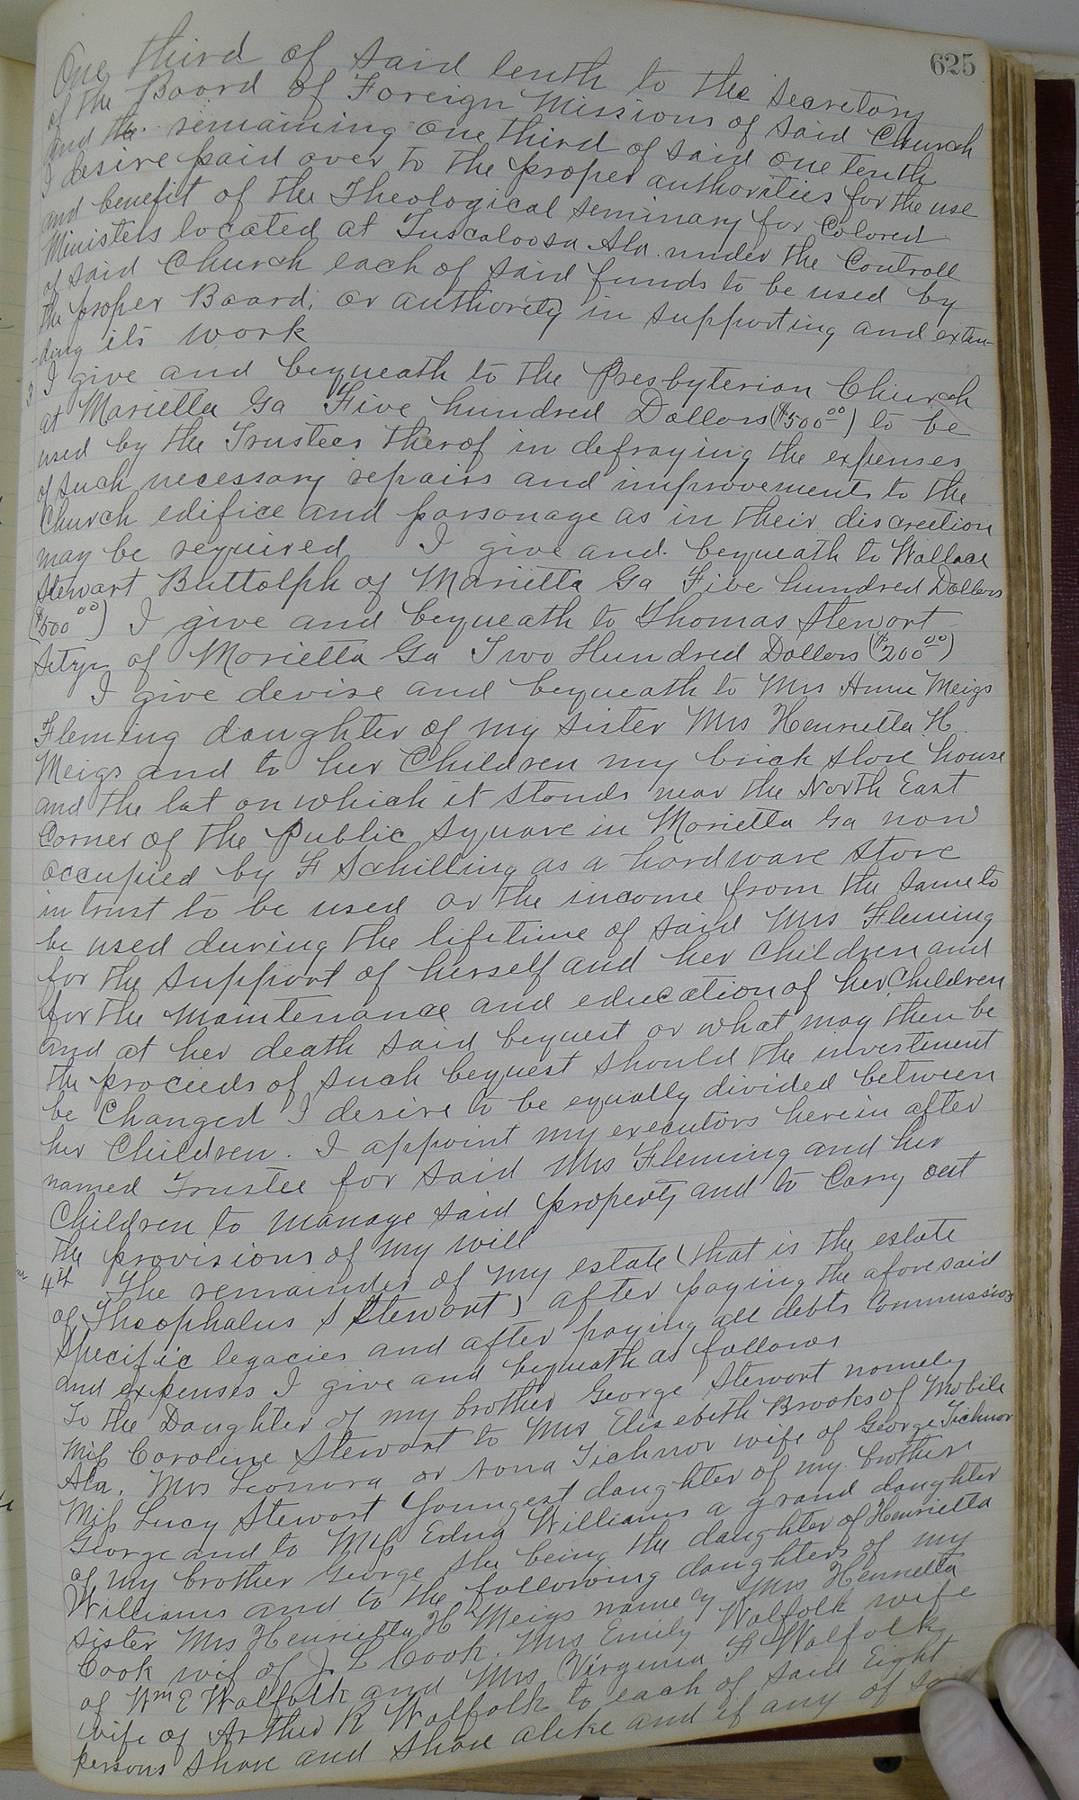 625
One third of said tenth to the Secretary
of the Board of Foreign Missions of said Church
and the remaining one third of said one tenth
I desire paid over to the proper authorities for the use
and benefit of the Theological Seminary for Colored
Ministers located at Tuscaloosa Ala. under the Controll
of said Church each of said funds to be used by
the proper Board, or authority in supporting and exten
-ding its work
3 I give and bequeath to the Presbyterian Church
at Marietta Ga Five hundred Dollars ($500 00) to be
used by the Trustees therof in defraying the expenses
of such necessary repairs and improvements to the
Church edifice and parsonage as in their discreetion
may be required I give and bequeath to Wallace
Stewart Buttolph of Marietta Ga Five hundred Dollars
($500 00) I give and bequeath to Thomas Stewart
of Marietta Ga Two Hundred Dollars ($200 00)
I give devise and bequeath to Mrs Anne Meigs
Fleming daughter of my sister Mrs Henrietta H.
Meigs and to her Children my brick store house
and the lot on which it stands near the North East
Corner of the Public Square in Marietta Ga now
occupied by F Schilling as a hardware store
in trust to be used or the income from the same to
be used during the lifetime of said Mrs Fleming
for the support of herself and her children and
for the maintenance and education of her Children
and at her death said bequest or what may then be
the proceeds of such bequest should the investment
be Changed I desire to be equally divided between
her Children. I appoint my executors herein after
named Trustee for said Mrs Fleming and her
Children to manage said property and to Carry out
the provisions of my will
4th The remainder of my estate (that is the estate
of Theophalus S Stewart) after paying the aforesaid
specific legacies and after paying all debts Commissions
and expenses I give and bequeath as follows
To the Daughter of my brother George Stewart namely
Miss Caroline Stewart to Mrs Elizebeth Brooks of Mobile
Ala. Mrs Leonora or Nona Tichnor wife of George Tichnor
Miss Lucy Stewart Youngest daughter of my brother
George and to Miss Edna Williams a grand daughter
of my brother George she being the daughter of Henrietta
Williams and to the following daughters of my
sister Mrs Henrietta H Meigs namely Mrs Henrietta
Cook wife of J. L Cook. Mrs Emily Walfolk wife
of Wm E Walfolk and Mrs Virginia F Walfolk
wife of Arthur R Walfolk to each of said Eight
persons share and share alike and if any of